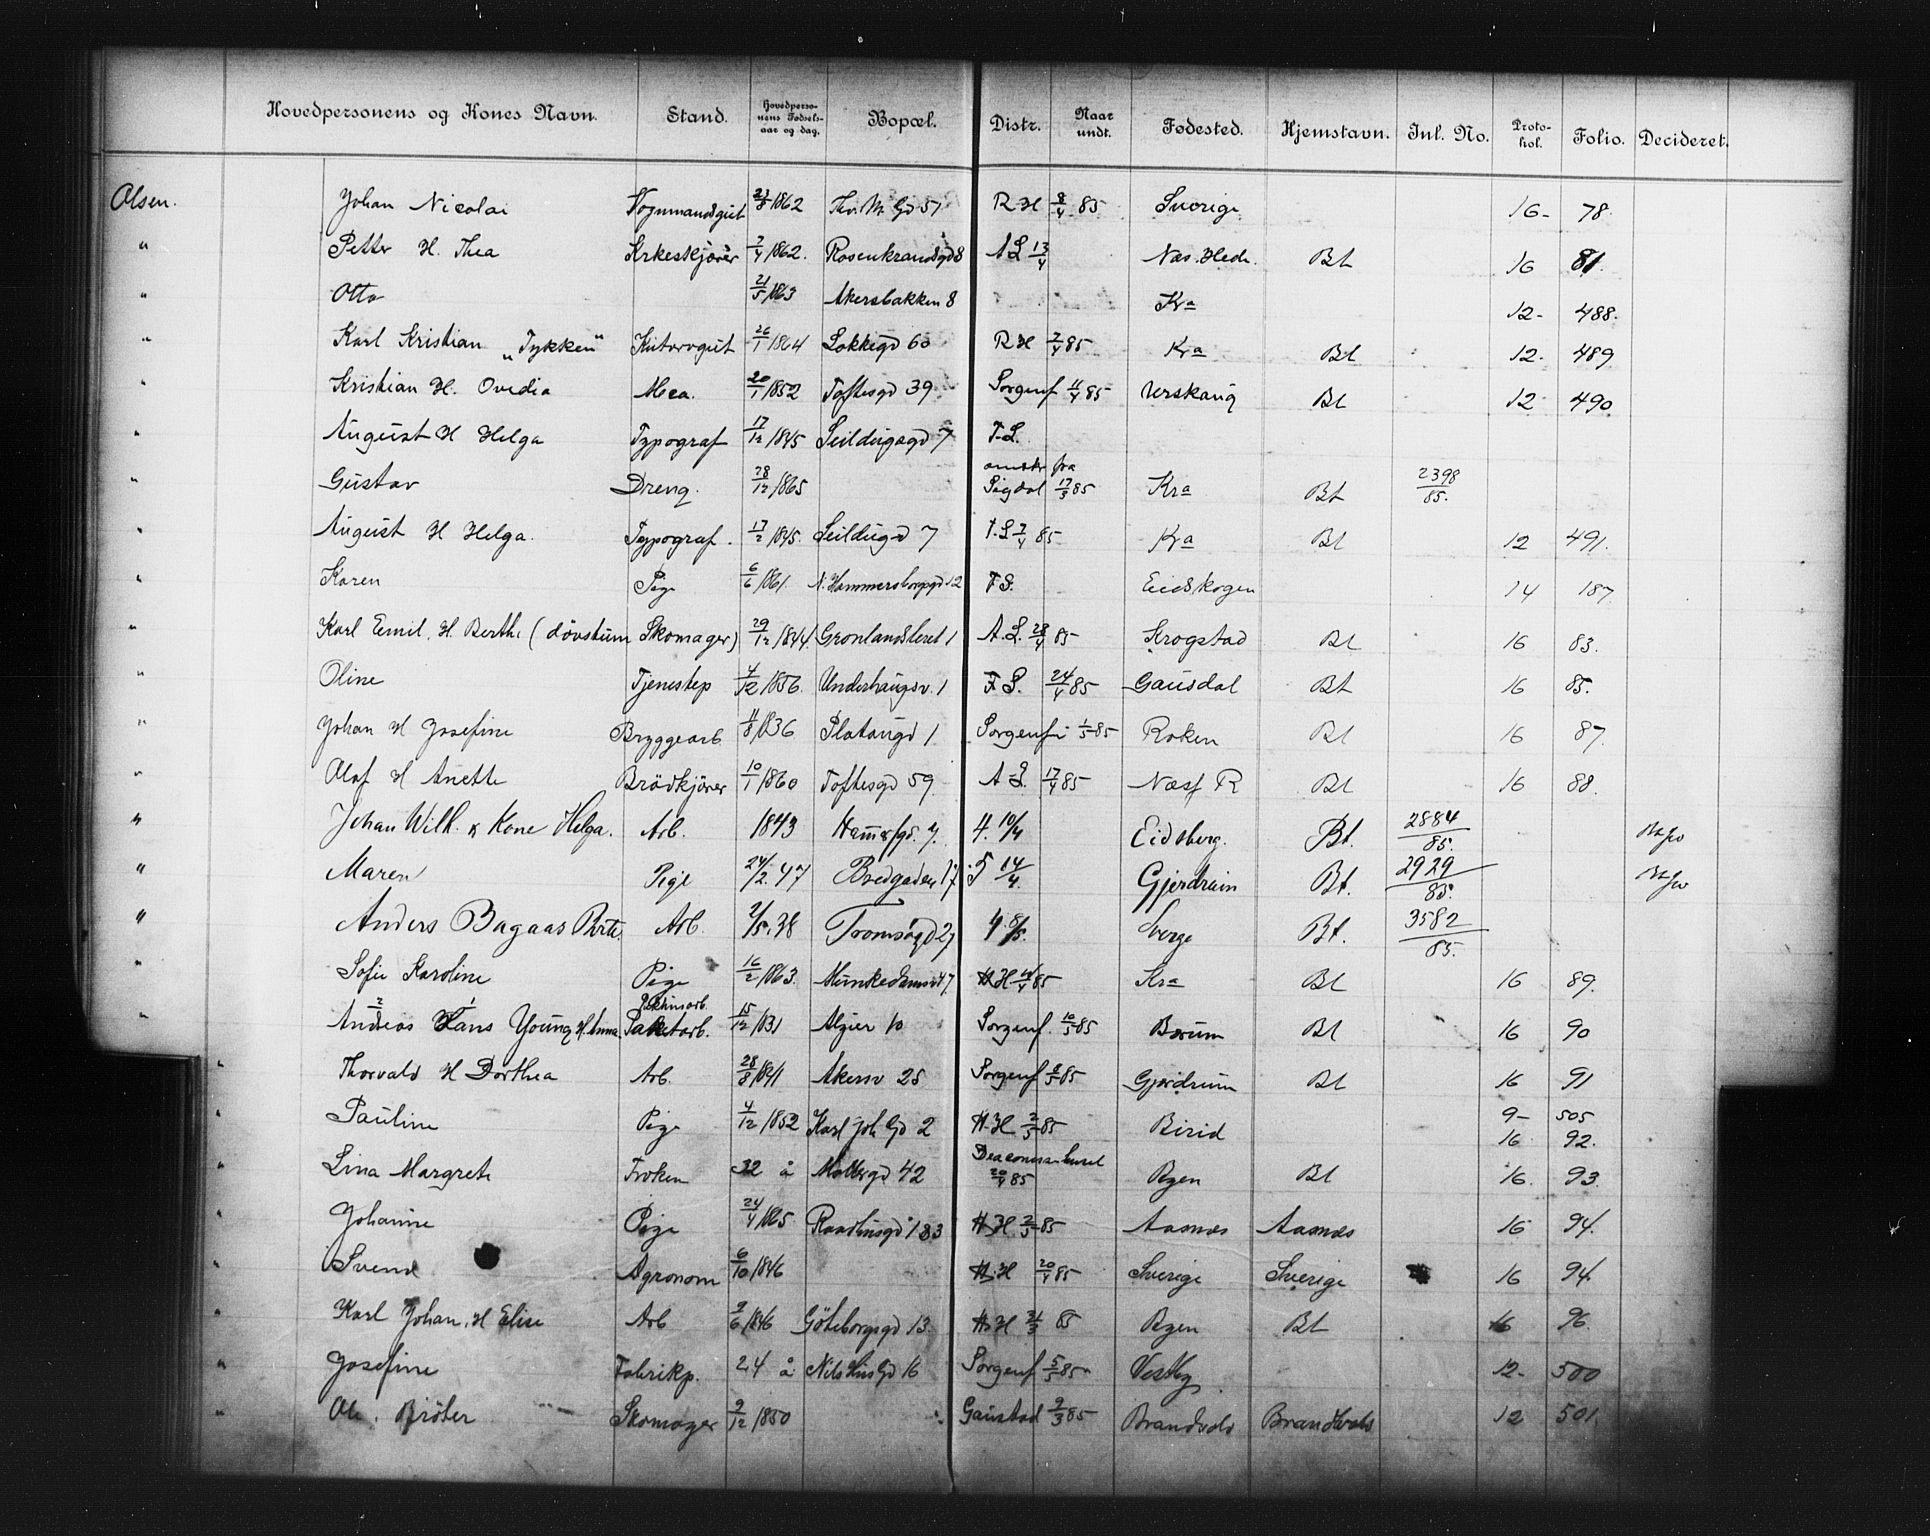 Hovedpersonens og Kones Navn. Stand. Hovedpersonens Fødselsaar og dag. Bopæl. Distr. Naar undt. Fødested. Hjemstavn. Inl. No. Protokol. Folio. Decideret.
Olsen. Johan Nicolai Vognmandsgut 23/8 1862 Thv. M. Gd 51 R H 9/4 85 Sverige 16- 78.
" Petter H. Thea 7/4 1862. Rosenkrandsgd 8 A L 13/4 Næs. Hede. Bt 16 81.
" Otto 21/5 1863 Akersbakken 8 Kra 12- 488.
" Karl Kristian „Tykken" 26/1 1864 Løkkegd 60 R H 7/4 85 Kra Bt 12- 489
" Kristian H. Ovedia 20/1 1852 Toftesgd 39 Sorgenf 11/4 85 Urskaug Bt 12 490
" August H Helga Typograf 17/12 1845 Seildugsgd 7 F. L.
" Gustav Dreng. 28/12 1865 omskr fra Sigdal 17/3 85 Kra Bt 2398/85.
" August H Helga. Typograf. 17/2 1845. Seildugsd 7 F. L 7/4 85 Kra Bt 12 491.
" Karen Pige 6/6 1861. N. Hammersborggd 12 F S. Eidskogen 14 187
" Karl Emil. H. Berthe (døvstum Skomager) 29/12 1844. Grønlandsleret 1 A. L. 28/4 85 Krogstad Bt 16 83.
" Oline Tjenestep 4/12 1856. Underhaugsv. 1 F S. 24/4 85 Gausdal Bt 16 85.
" Johan H Josefine Bryggearb 11/8 1836 Platougd 1. Sorgenfri 1/5 85 Røken Bt 16 87.
" Olaf H Anette Brødkjører 10/1 1860 Toftesgd 59 A L. 17/4 85 Næss R Bt 16 88
" Johan Wilh. & Kone Helga. Arb. 1843 4. 10/4 Eidsberg. Bt. 2884/85.
" Maren Pige 24/2. 47 Bredgaden 17 5 14/4. Gjerdrum Bt. 2929/85.
" Anders Bagaas Arb. 2/5. 38 Tromsøgd 27 4. 8/5. Sverge Bt. 3582/85.
" Sofie Karoline Pige 16/2 1863. Munkedamsv 47 H H 14/4 85 Kra Bt 16 89.
" Andreas Hans Young H. Anna 15/12 1831 Algier 10 Sorgenf. 10/5 85 Bærum Bt 16 90
" Thorvald H Dorthea Arb. 28/8 1841 Akersv 25 Sorgenf 8/5 85 Gjerdrum Bt 16 91
" Pauline Pige 4/12 1852 Karl Joh Gd 2 H. H 2/5 85 Birid 9- 505
16 92.
" Lina Margrete Frøken 32 å Møllergd 42 Deaconissehuset 20/4 85 Bgen Bt 16. 93.
" Johanne Pige 24/4 1865 H H 2/5 85 Aasnæs Aasnæs 16 94.
" Svend Agronom 6/10 1846 H. H 20/4 85 Sverige Sverige 16 94.
" Karl Johan. H Elise Arb 9/6 1846 Göteborgsgd 13. H H 31/3 85 Bgen Bt 16 96.
" Josefine Fabrikp. 24 å Nils Huus Gd 16 Sorgenf 5/5 85 Vestby 12- 500
" Ole. Brøter Skomager 9/12 1850 Gaustad 9/3 85 Brandvold Brandvold 12 501.